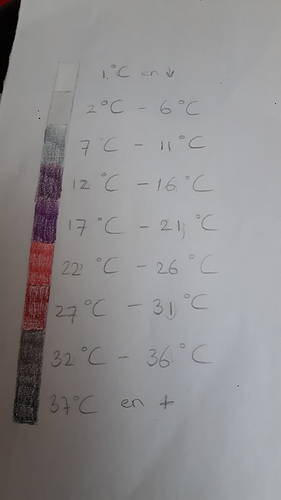 1°C en ↓
2°C - 6°C
7°C - 11°C
12°C - 16°C
17°C - 21°C
22°C - 26°C
27°C - 31°C
32°C - 36°C
37°C en +